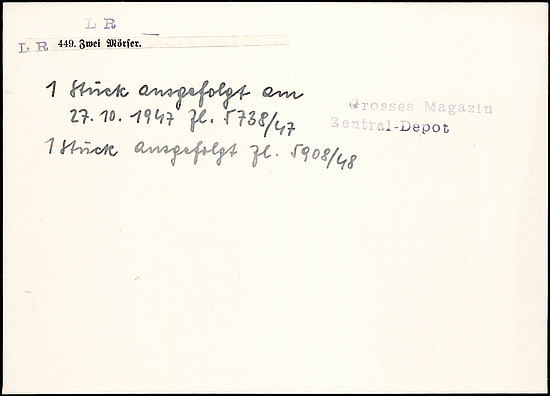 L R
L R 449. Zwei Mörser.
1 Stück ausgefolgt am
27. 10. 1947 Zl. 5738/47
Grosses Magazin
Zentral-Depot
1 Stück ausgefolgt Zl. 5908/48